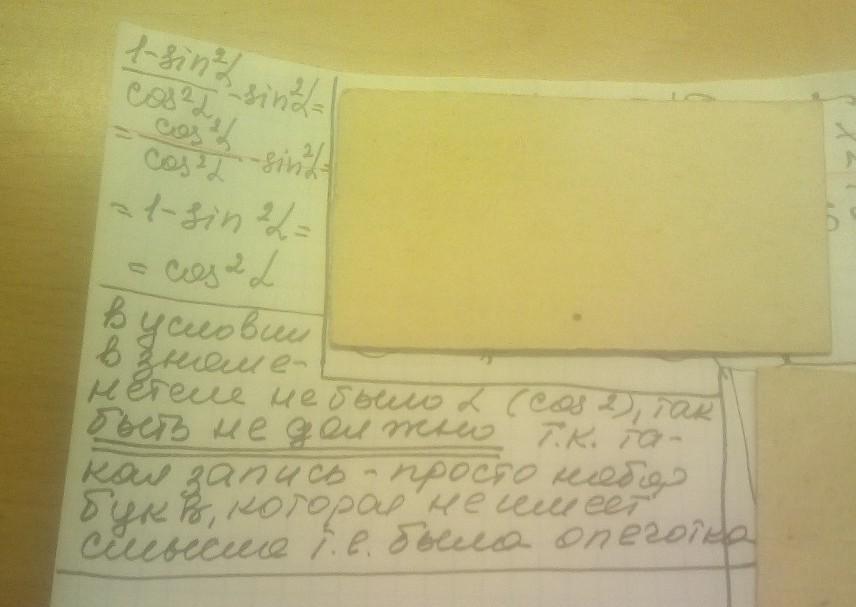 1-sin²α
cos²α -sin²α=
= cos²α
cos²α -sin²α=
= 1-sin²α=
= cos²α
В условии
в знаме-
нателе не было α (cos2), так
быть не должно т.к. та-
кая запись - просто набор
букв, которая не имеет
смысла т.е. была опечатка